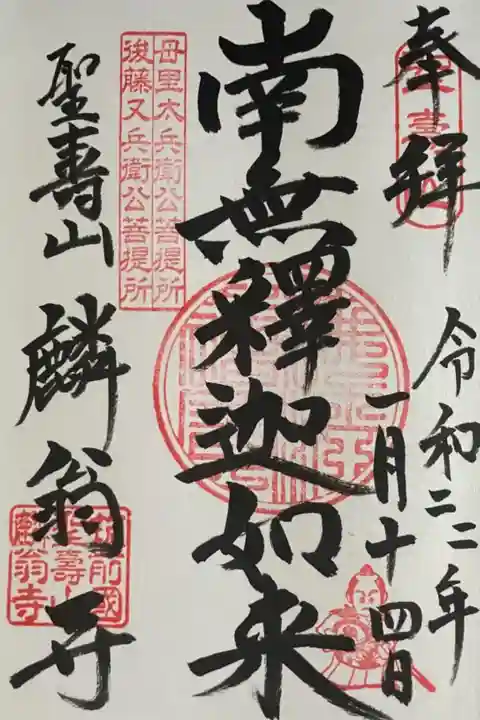 奉拝
令和二二年
一月十四日
南無釋迦如来
母里太兵衛公菩提所
後藤又兵衛公菩提所
聖寿山 麟翁寺
筑前國
聖壽山
麟翁寺